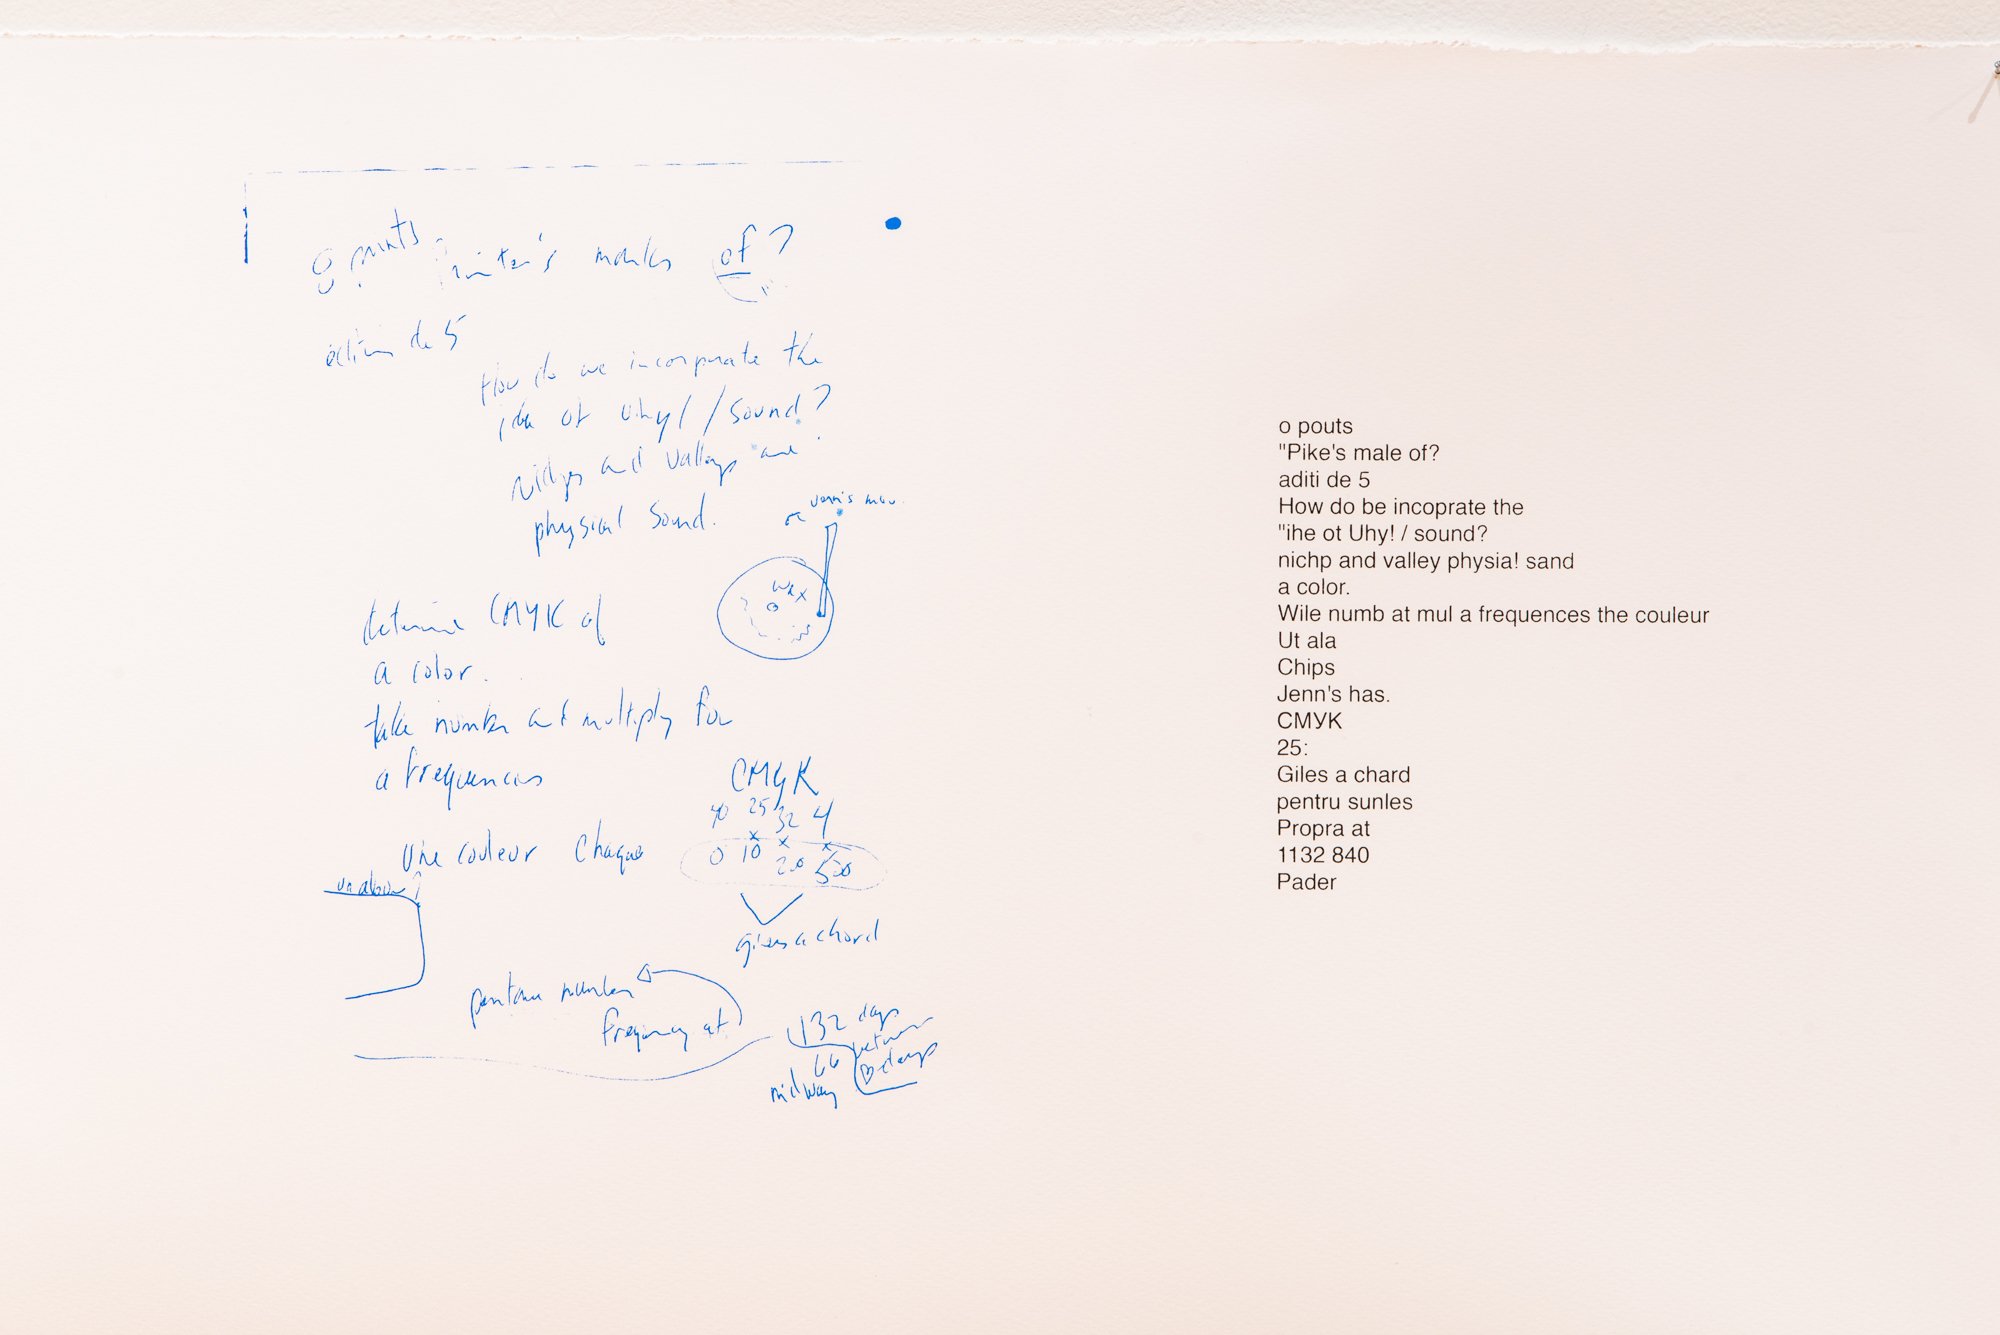 8 prints
printer's marks of?
édition de 5
How do we incorporate the
idea of vinyl / sound?
ridges and valleys are
physical sound.
or Jenn's
wax
determine CMYK of
a color.
take number and multiply for
a frequences
CMYK
40 25 32 4
x x x
0 10 20 500
Une couleur chaque
un album?
gives a chord
pantone number
frequency at
132 days
between
66
midway
o pouts
"Pike's male of?
aditi de 5
How do be incoprate the
"ihe ot Uhy! / sound?
nichp and valley physia! sand
a color.
Wile numb at mul a frequences the couleur
Ut ala
Chips
Jenn's has.
СМУК
25:
Giles a chard
pentru sunles
Propra at
1132 840
Pader